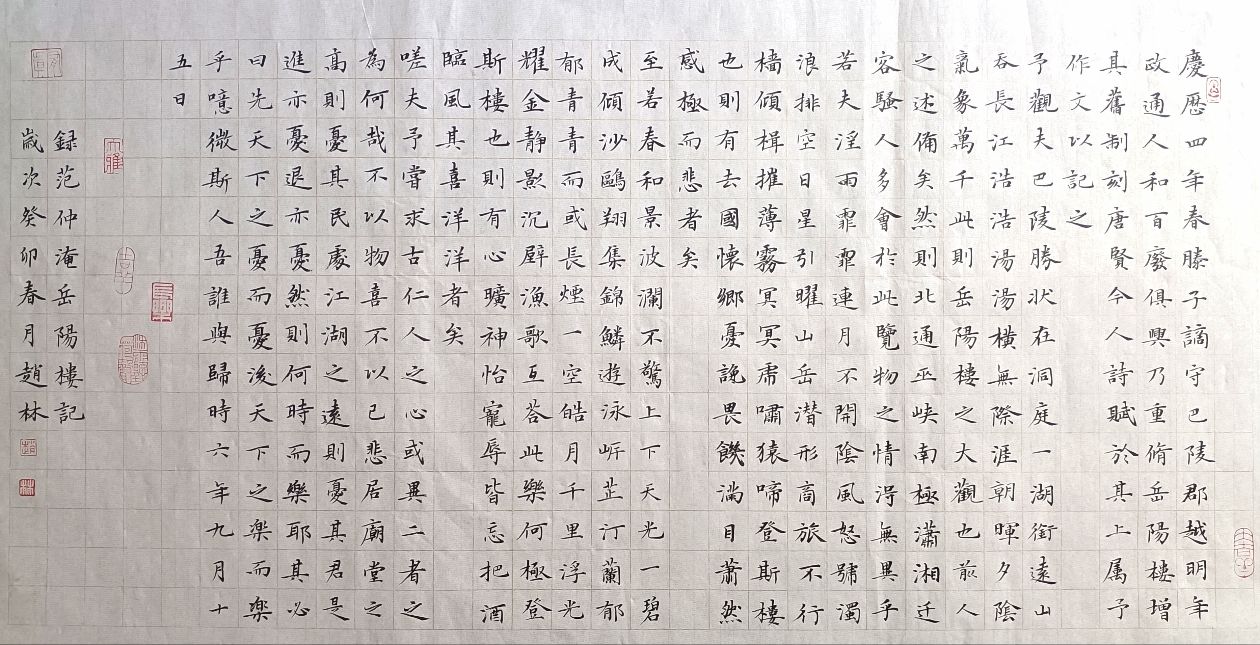 慶厯四年春滕子謫守巴陵郡越明年
政通人和百廢俱興乃重脩岳陽樓增
其舊制刻唐賢今人詩賦於其上属予
作文以記之
予觀夫巴陵勝状在洞庭一湖銜遠山
吞長江浩浩湯湯橫無際涯朝暉夕陰
氣象萬千此則岳陽樓之大觀也前人
之述備矣然則北通巫峽南極瀟湘迁
容騷人多會於此覽物之情淂無異乎
若夫淫雨霏霏連月不開陰風怒號濁
浪排空日星引曜山岳潜形商旅不行
檣傾楫摧薄霧冥冥虎嘯猿啼登斯樓
也則有去國懷鄉憂讒畏饑滿目蕭然
感極而悲者矣
至若春和景波瀾不驚上下天光一碧
成傾沙鷗翔集錦鱗遊泳岍芷汀蘭郁
郁青青而或長煙一空皓月千里浮光
耀金静影沉壁漁歌互荅此樂何極登
斯樓也則有心曠神怡寵辱皆忘把酒
臨風其喜洋洋者矣
嗟夫予嘗求古仁人之心或異二者之
為何哉不以物喜不以己悲居廟堂之
高則憂其民處江湖之遠則憂其君是
進亦憂退亦憂然則何時而樂耶其必
曰先天下之憂而憂後天下之楽而楽
乎噫微斯人吾誰與歸時六年九月十
五日
大雅
録范仲淹岳陽樓記
歲次癸卯春月趙林
趙
林